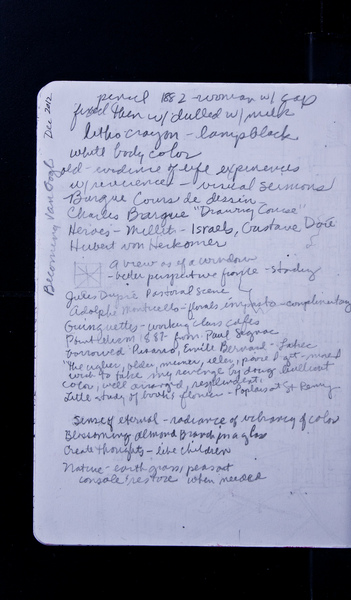 Becoming Van Gogh Dec 2012
pencil 1882 - woman w/ cap
fixed then w/ dulled w/ milk
litho crayon - lampblack
white body color
old - evidence of life experiences
w/ reverence - visual sermons
Bargue Cours de dessin
Charles Bargue "Drawing Course"
Heroes - Millet - Israels, Gustave Doré
Hubert von Herkomer
a view as if a window
perspective
Jules Dupré Pastoral scene
Adolphe Monticelli - florals impasto - complementary
Guinguettes - working class cafes
Pointillism 1887 from Paul Signac
borrowed Pissarro, Emile Bernard - Lautrec
"The uglier, older, meaner, iller, poorer I get - more I
wish to take my revenge by doing brilliant
color, well arranged, resplendent.
Little study of flowers - Poplars at St Remy
Sense of eternal - radiance of vibrancy of color
Blossoming Almond Branch in a glass
Create thoughts - like children
Nature - earth grass, peasant
console, restore when needed